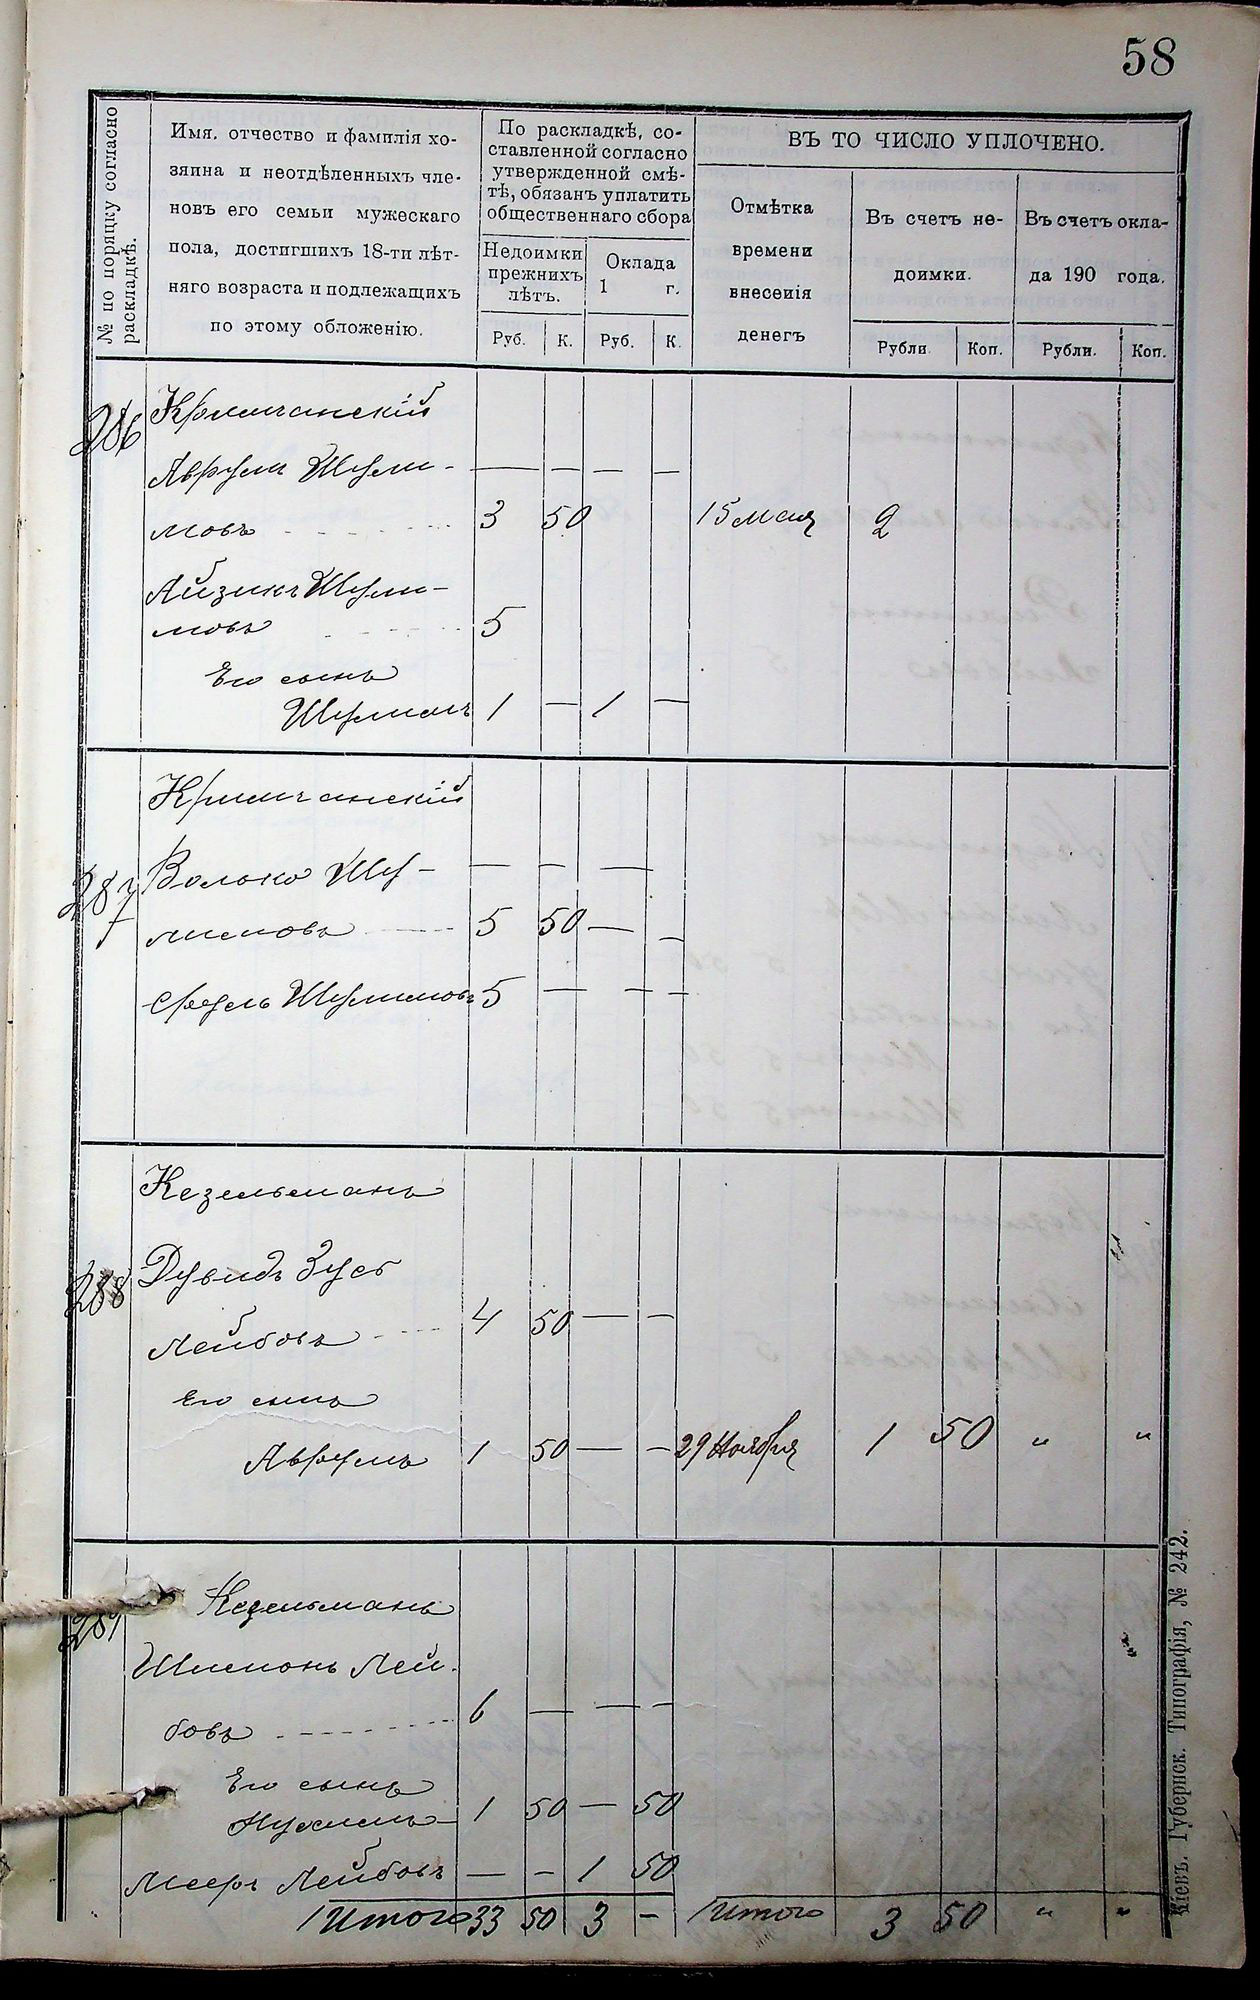 58
№ по порядку согласно
раскладкѣ.
Имя, отчество и фамилія хо-
зяина и неотдѣленныхъ чле-
новъ его семьи мужескаго
пола, достигшихъ 18-ти лѣт-
няго возраста и подлежащихъ
по этому обложенію.
По раскладкѣ, со-
ставленной согласно
утвержденной смѣ-
тѣ, обязанъ уплатить
общественнаго сбора
Недоимки
прежнихъ
лѣтъ.
Оклада
1 г.
Руб. К. Руб. К.
ВЪ ТО ЧИСЛО УПЛОЧЕНО.
Отмѣтка
времени
внесенія
денегъ
Въ счетъ не-
доимки.
Въ счетъ окла-
да 190 года.
Рубли Коп. Рубли. Коп.
286 Кримчанскій
Аврумъ Шули- — — — —
мовъ 3 50 15 Мая 2
Айзикъ Шули-
мовъ 5
Его сынъ
Шулимъ 1 — 1 —
287 Кримчанскій
Волько Шу- — — —
лимовъ 5 50 — —
Сруль Шулимовъ 5 — — —
288 Кезельманъ
Дувидъ Зусь
Лейбовъ 4 50 — —
Его сынъ
Аврумъ 1 50 — — 29 Ноября 1 50 " "
289 Кезельманъ
Шимонъ Лей-
бовъ 6 — — —
Его сынъ
Нухимъ 1 50 — 50
Мееръ Лейбовъ — — 1 50
Итого 33 50 3 — Итого 3 50 " "
Кіевъ. Губернск. Типографія, № 242.